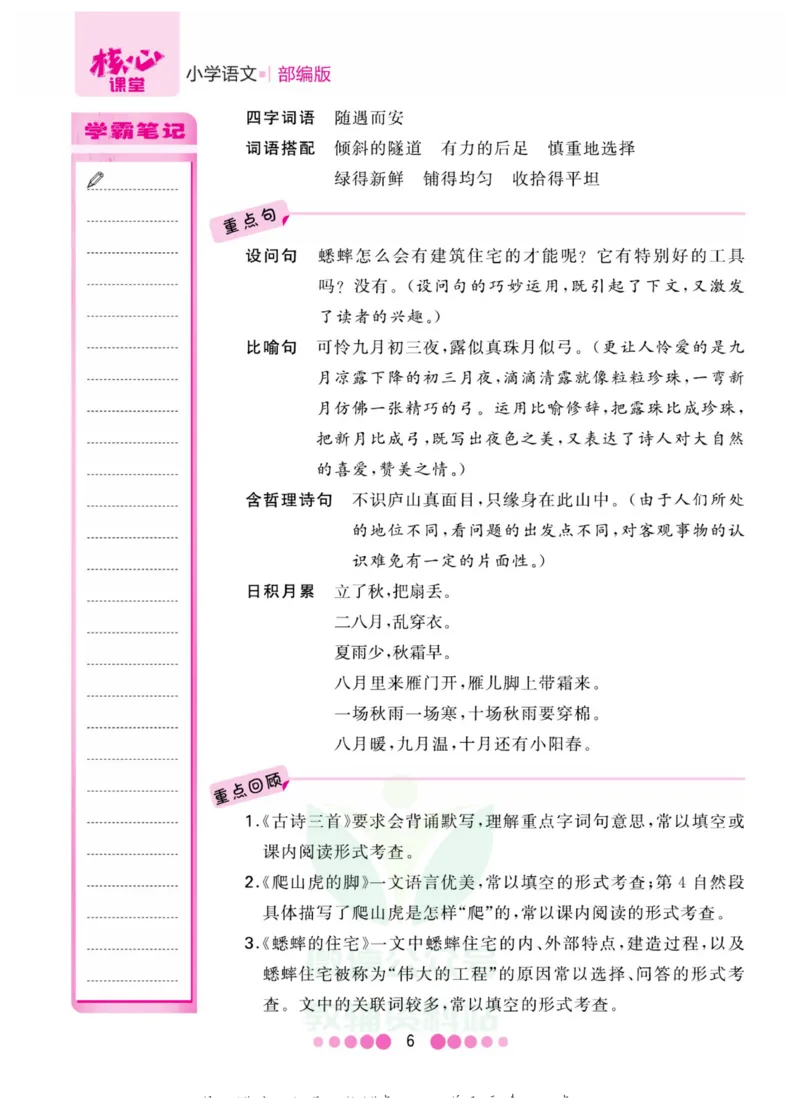 核心
课堂
小学语文 部编版
学霸笔记
四字词语 随遇而安
词语搭配 倾斜的隧道 有力的后足 慎重地选择
绿得新鲜 铺得均匀 收拾得平坦
重点句
设问句 蟋蟀怎么会有建筑住宅的才能呢？它有特别好的工具
吗？没有。(设问句的巧妙运用,既引起了下文,又激发
了读者的兴趣。)
比喻句 可怜九月初三夜,露似真珠月似弓。(更让人怜爱的是九
月凉露下降的初三月夜,滴滴清露就像粒粒珍珠,一弯新
月仿佛一张精巧的弓。运用比喻修辞,把露珠比成珍珠,
把新月比成弓,既写出夜色之美,又表达了诗人对大自然
的喜爱,赞美之情。)
含哲理诗句 不识庐山真面目,只缘身在此山中。(由于人们所处
的地位不同,看问题的出发点不同,对客观事物的认
识难免有一定的片面性。)
日积月累 立了秋,把扇丢。
二八月,乱穿衣。
夏雨少,秋霜早。
八月里来雁门开,雁儿脚上带霜来。
一场秋雨一场寒,十场秋雨要穿棉。
八月暖,九月温,十月还有小阳春。
重点回顾
1.《古诗三首》要求会背诵默写,理解重点字词句意思,常以填空或
课内阅读形式考查。
2.《爬山虎的脚》一文语言优美,常以填空的形式考查;第 4 自然段
具体描写了爬山虎是怎样“爬”的,常以课内阅读的形式考查。
3.《蟋蟀的住宅》一文中蟋蟀住宅的内、外部特点,建造过程,以及
蟋蟀住宅被称为“伟大的工程”的原因常以选择、问答的形式考
查。文中的关联词较多,常以填空的形式考查。
教辅资料站
6